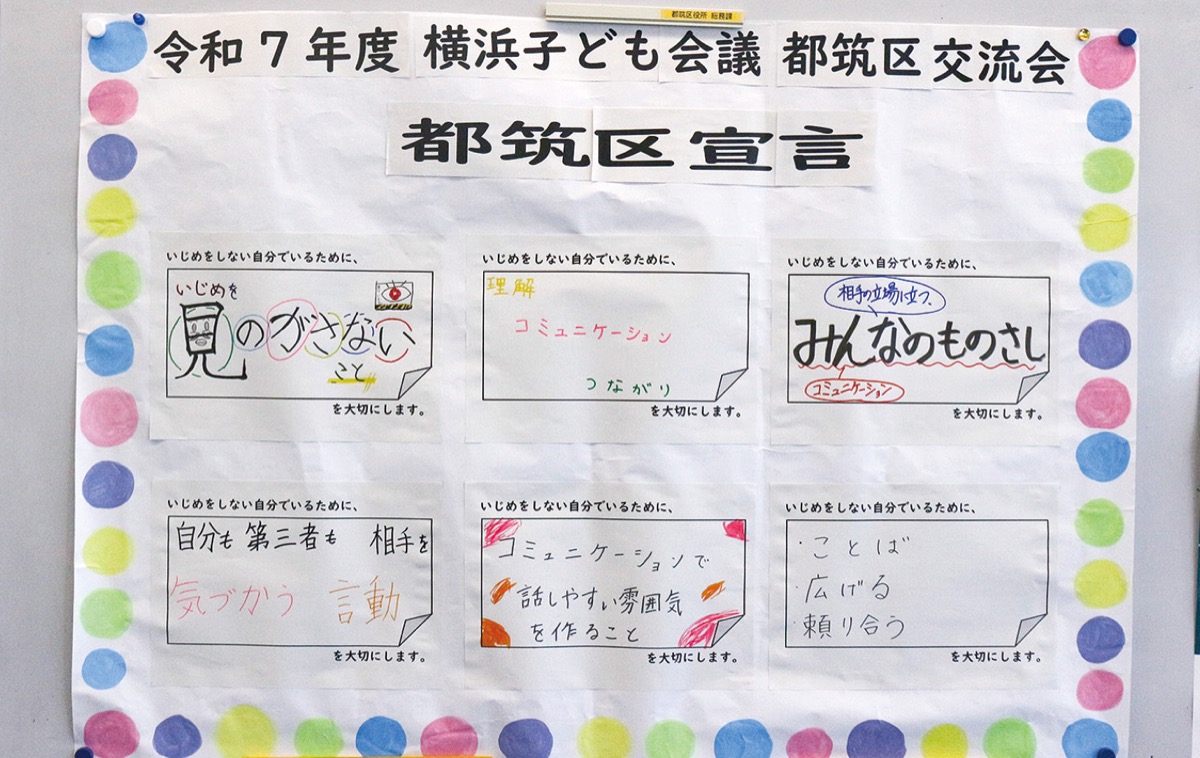 都筑区役所 総務課
令和7年度 横浜子ども会議 都筑区交流会
都筑区宣言
いじめをしない自分でいるために、
いじめを
見のがさない
こと
を大切にします。
いじめをしない自分でいるために、
理解
コミュニケーション
つながり
を大切にします。
いじめをしない自分でいるために、
相手の立場に立つ、
みんなのものさし
コミュニケーション
を大切にします。
いじめをしない自分でいるために、
自分も 第三者も 相手を
気づかう 言動
を大切にします。
いじめをしない自分でいるために、
コミュニケーションで
話しやすい雰囲気
を作ること
を大切にします。
いじめをしない自分でいるために、
・ことば
・広げる
・頼り合う
を大切にします。